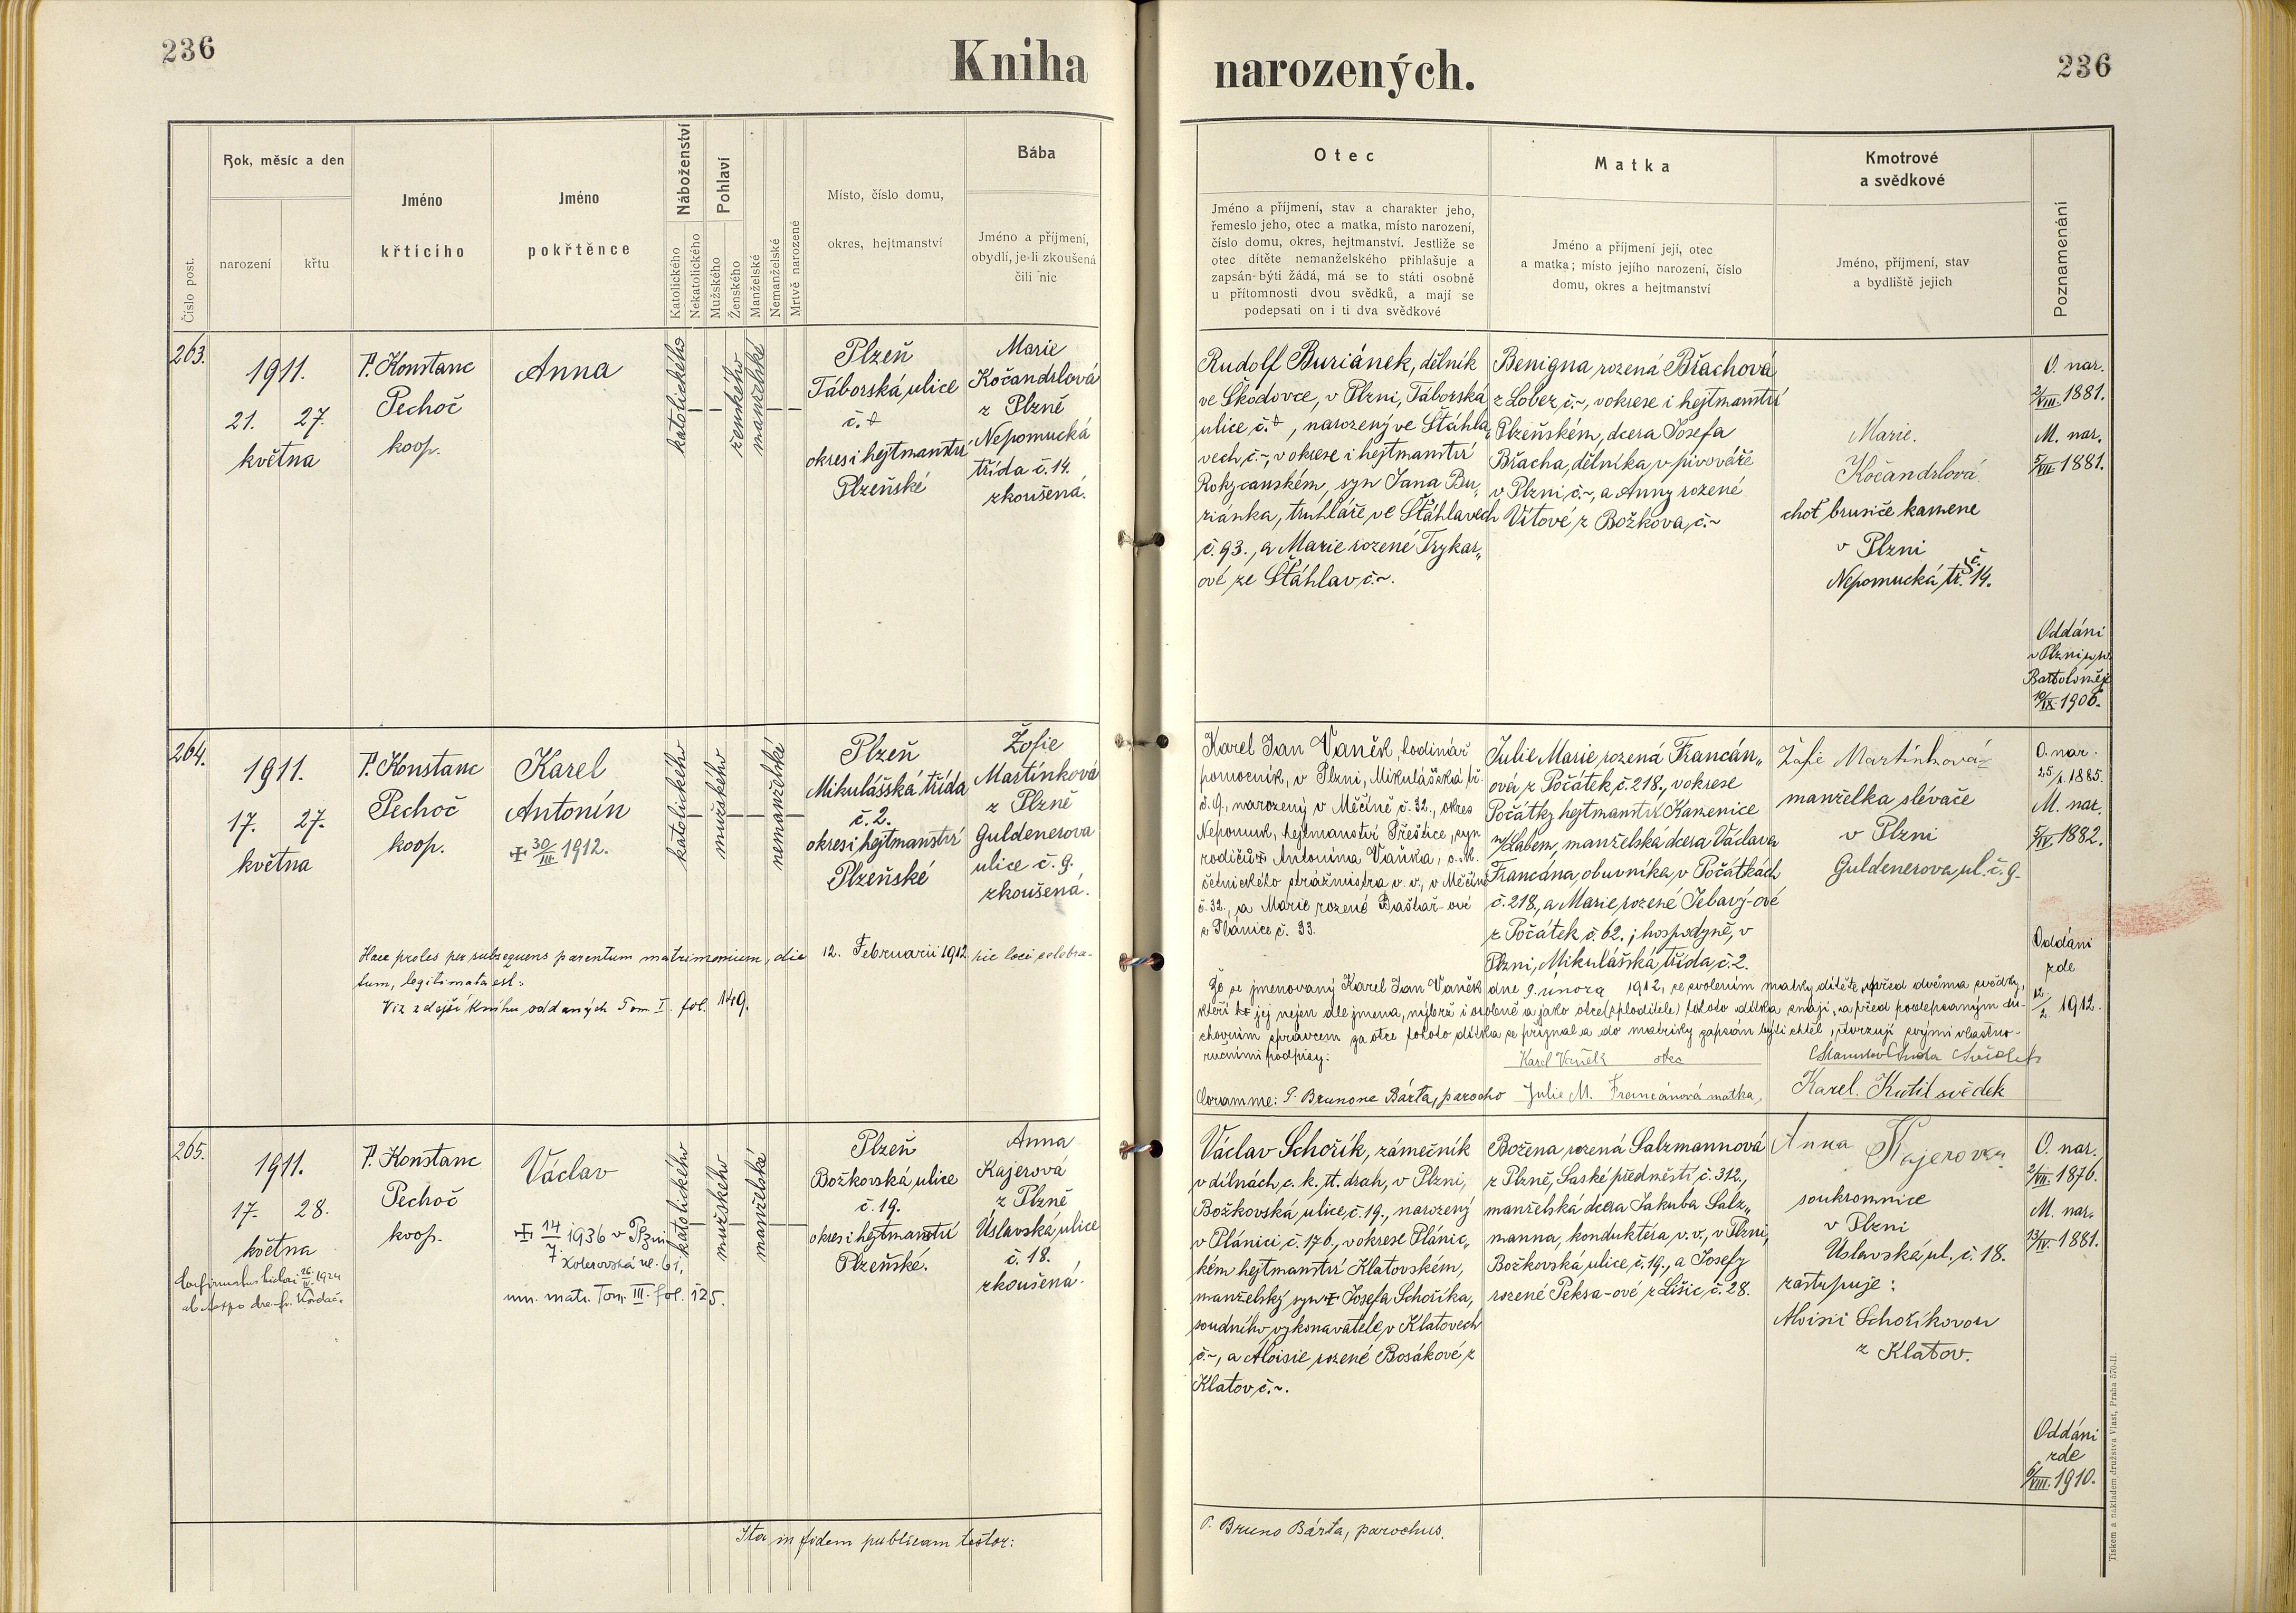 236
Kniha
narozených.
236
Číslo post.
Rok, měsíc a den
narození
křtu
Jméno
křticího
Jméno
pokřtěnce
Náboženství
Katolického
Nekatolického
Pohlaví
Mužského
Ženského
Manželské
Nemanželské
Mrtvě narozené
Místo, číslo domu,
okres, hejtmanství
Bába
Jméno a příjmení,
obydlí, je-li zkoušená
čili nic
Otec
Jméno a příjmení, stav a charakter jeho,
řemeslo jeho, otec a matka, místo narození,
číslo domu, okres, hejtmanství. Jestliže se
otec dítěte nemanželského přihlašuje a
zapsán býti žádá, má se to státi osobně
u přítomnosti dvou svědků, a mají se
podepsati on i ti dva svědkové
Matka
Jméno a příjmení její, otec
a matka; místo jejího narození, číslo
domu, okres a hejtmanství
Kmotrové
a svědkové
Jméno, příjmení, stav
a bydliště jejich
Poznamenání
263.
1911.
21. 27.
května
P. Konstanc
Pechoč
koop.
Anna
katolického
ženského
manželské
Plzeň
Táborská ulice
č.
okres i hejtmanství
Plzeňské
Marie
Kočandrlová
z Plzně
Nepomucká
třída č. 14.
zkoušená.
Rudolf Buriánek, dělník
ve Škodovce, v Plzni, Táborská
ulice, č. , narozený ve Štáhla„
vech, č. ~, v okrese i hejtmanství
Rokycanském, syn Jana Bu„
riánka, truhláře, ve Šťáhlavech
č. 93., a Marie rozené Trykar„
ové ze Šťáhlav č. ~.
Benigna rozená Břachová
z Lobez, č. ~, v okrese i hejtmanství
Plzeňském, dcera Josefa
Břacha, dělníka v pivováře
v Plzni č. ~, a Anny rozené
Vítové z Božkova, č. ~
Marie.
Kočandrlová
choť brusiče kamene
v Plzni
Nepomucká tř. č. 14.
O. nar.
2/VIII. 1881.
M. nar.
5/VII. 1881.
Oddáni
v Plzni u sv.
Bartoloměje
10/IX. 1906.
264.
1911.
17. 27.
května
P. Konstanc
Pechoč
koop.
Karel
Antonín
✠ 30/III 1912.
katolického
mužského
nemanželské
Plzeň
Mikulášská třída
č. 2.
okres i hejtmanství
Plzeňské
Žofie
Martínková
z Plzně
Guldenerova
ulice č. 9.
zkoušená.
Haec proles per subsequens parentum matrimonium, die 12. Februarii 1912 hic loci celebra-
tum, legitimata est.
Viz zdejší knihu oddaných Tom. I. fol. 149.
Karel Jan Vaněk, hodinář.
pomocník, v Plzni, Mikulášská tř.
č. 9., narozený v Měčíně č. 32., okres
Nepomuk, hejtmanství Přeštice, syn
rodičů Antonína Vaňka, c. k.
četnického strážmistra v. v., v Měčíně
č. 32., a Marie rozené Baštař-ové
z Plánice č. 33.
Julie Marie rozená Francán„
ová z Počátek č. 218., v okrese
Počátky hejtmanství Kamenice
n/Labem, manželská dcera Václava
Francána, obuvníka, v Počátkách
č. 218., a Marie rozené Jebavý-ové
z Počátek č. 62.; hospodyně, v
Plzni, Mikulášská třída, č. 2.
Žofie Martínková
manželka slévače
v Plzni
Guldenerova ul. č. 9.
O. nar.
25/I. 1885.
M. nar.
5/IV. 1882.
Oddáni
zde
12./2. 1912.
Že se jmenovaný Karel Jan Vaněk dne 9. února 1912, se svolením matky dítěte, před dvěma svědky,
kteří jej nejen dle jména, nýbrž i osobně a jako otce (zploditele) tohoto dítka znají, a před podepsaným du-
chovním správcem za otce tohoto dítka se přiznal a do matriky zapsán býti chtěl, stvrzují svými vlastno-
ručními podpisy:
Karel Vaněk otec
svědek
Coram me: P. Brunone Bárta, parocho
Julie M. Francánová matka,
Karel. Kutil svědek
265.
1911.
17. 28.
května
Confirmatus hic loci 26/IV. 1924
ab Aeppo dre. Fr. Kordač.
P. Konstanc
Pechoč
koop.
Václav
✠ 14/7. 1936 v Plzni
Koterovská ul. 61,
um. matr. Tom. III. fol. 125.
katolického
mužského
manželské
Plzeň
Božkovská ulice
č. 19.
okres i hejtmanství
Plzeňské.
Anna
Kajerová
z Plzně
Úslavská ulice
č. 18.
zkoušená.
Václav Schořík, zámečník
v dílnách c. k. st. drah, v Plzni,
Božkovská ulice, č. 19., narozený
v Plánici č. 176., v okrese Plánic„
kém hejtmanství Klatovském,
manželský syn Josefa Schoříka,
soudního vykonavatele v Klatovech
č. ~, a Aloisie rozené Bosákové z
Klatov, č. ~.
Božena, rozená Salzmannová
z Plzně, Saské předměstí, č. 312.,
manželská dcera Jakuba Salz„
manna, konduktéra v. v., v Plzni,
Božkovská ulice, č. 19., a Josefy
rozené Peksa-ové z Lišic, č. 28.
Anna Kajerova
soukromnice
v Plzni
Úslavská ul. č. 18.
zastupuje:
Aloisii Schoříkovou
z Klatov.
O. nar.
2/VII. 1876.
M. nar.
13/IV. 1881.
Oddáni
zde
6/VIII. 1910.
Ita in fidem publicam testor:
P. Bruno Bárta, parochus.
Tiskem a nákladem družstva Vlast, Praha 570-II.